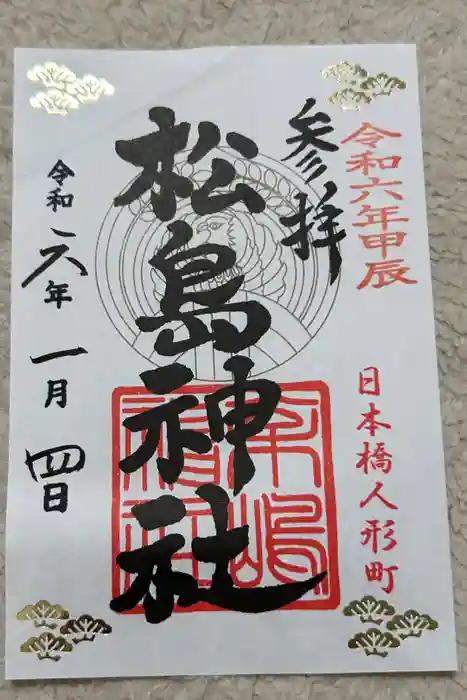 令和六年甲辰
日本橋人形町
参拝
松島神社
令和六年
一月
四日